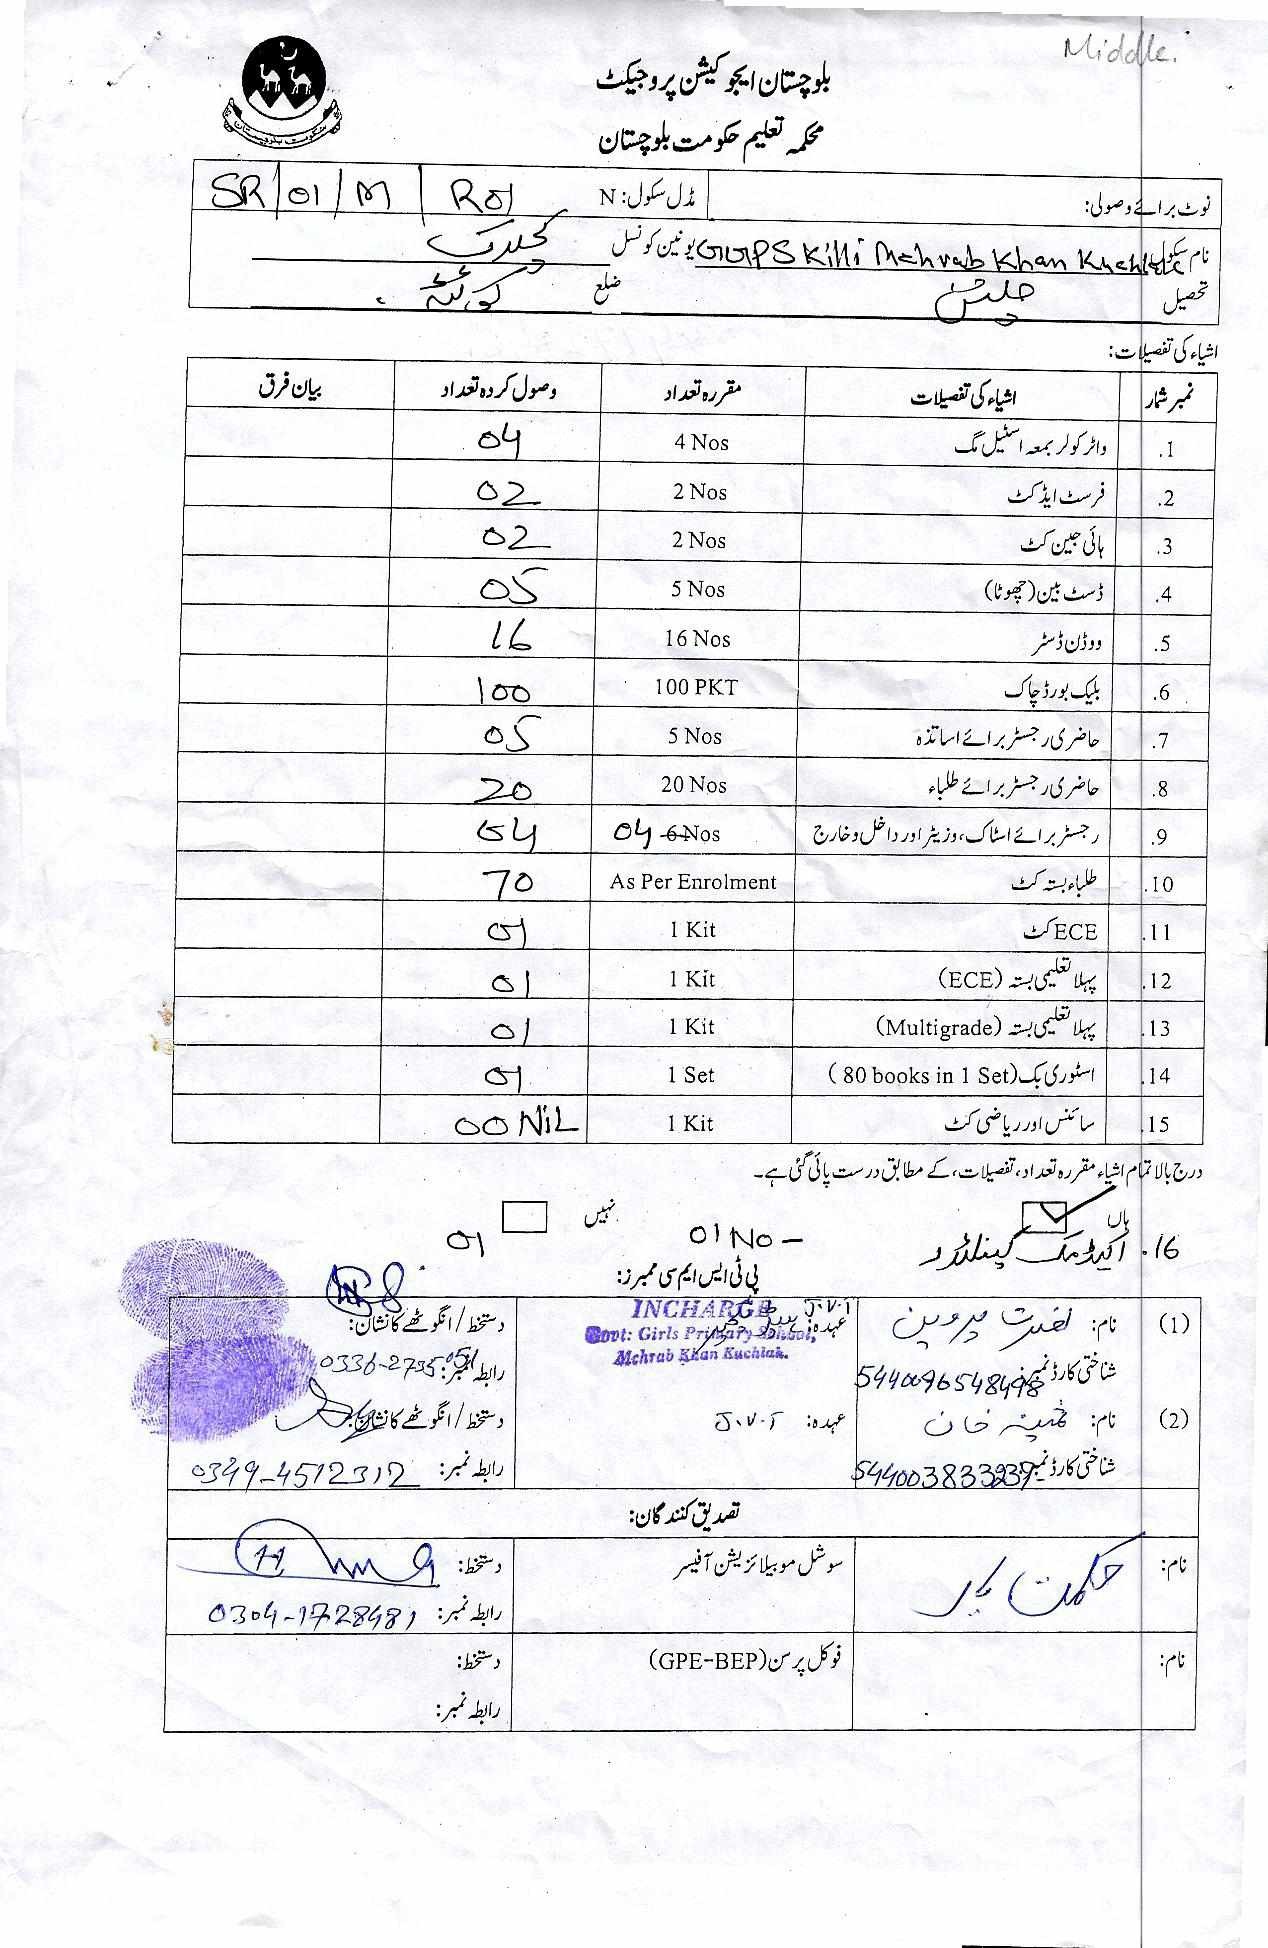 Middle.
بلوچستان ایجوکیشن پروجیکٹ
محکمہ تعلیم حکومت بلوچستان
نوٹ برائے وصولی: مڈل سکول: N SR/01/M/R01
نام سکول GGPS Killi Mehrab Khan Kuchlak یونین کونسل کچلاک
تحصیل ضلع کوئٹہ
اشیاء کی تفصیلات:
نمبر شمار اشیاء کی تفصیلات مقررہ تعداد وصول کردہ تعداد بیان فرق
1. واٹر کولر بمعہ اسٹیل مگ 4 Nos 04
2. فرسٹ ایڈ کٹ 2 Nos 02
3. ہائی جین کٹ 2 Nos 02
4. ڈسٹ بین (چھوٹا) 5 Nos 05
5. ووڈن ڈسٹر 16 Nos 16
6. بلیک بورڈ چاک 100 PKT 100
7. حاضری رجسٹر برائے اساتذہ 5 Nos 05
8. حاضری رجسٹر برائے طلباء 20 Nos 20
9. رجسٹر برائے اسٹاک، وزیٹر اور داخل و خارج 04 6 Nos 04
10. طلباء بستہ کٹ As Per Enrolment 70
11. ECE کٹ 1 Kit 01
12. پہلا تعلیمی بستہ (ECE) 1 Kit 01
13. پہلا تعلیمی بستہ (Multigrade) 1 Kit 01
14. اسٹوری بک (80 books in 1 Set) 1 Set 01
15. سائنس اور ریاضی کٹ 1 Kit 00 NiL
درج بالا تمام اشیاء مقررہ تعداد، تفصیلات، کے مطابق درست پائی گئی ہے۔
ہاں نہیں
16. اکیڈمک کیلنڈر 01 No - 01
پی ٹی ایس ایم سی ممبرز:
(1) نام: نصرت پروین عہدہ: J.V.T دستخط / انگوٹھے کا نشان:
INCHARGE
Govt: Girls Primary School,
Mehrab Khan Kuchlak.
شناختی کارڈ نمبر: رابطہ نمبر: 0336-2735051
(2) نام: ثمینہ خان عہدہ: J.V.T دستخط / انگوٹھے کا نشان:
شناختی کارڈ نمبر: رابطہ نمبر: 0349-4512312
تصدیق کنندگان:
نام: حکمت یار سوشل موبیلائزیشن آفیسر دستخط:
رابطہ نمبر: 0304-1728481
نام: فوکل پرسن (GPE-BEP) دستخط:
رابطہ نمبر: